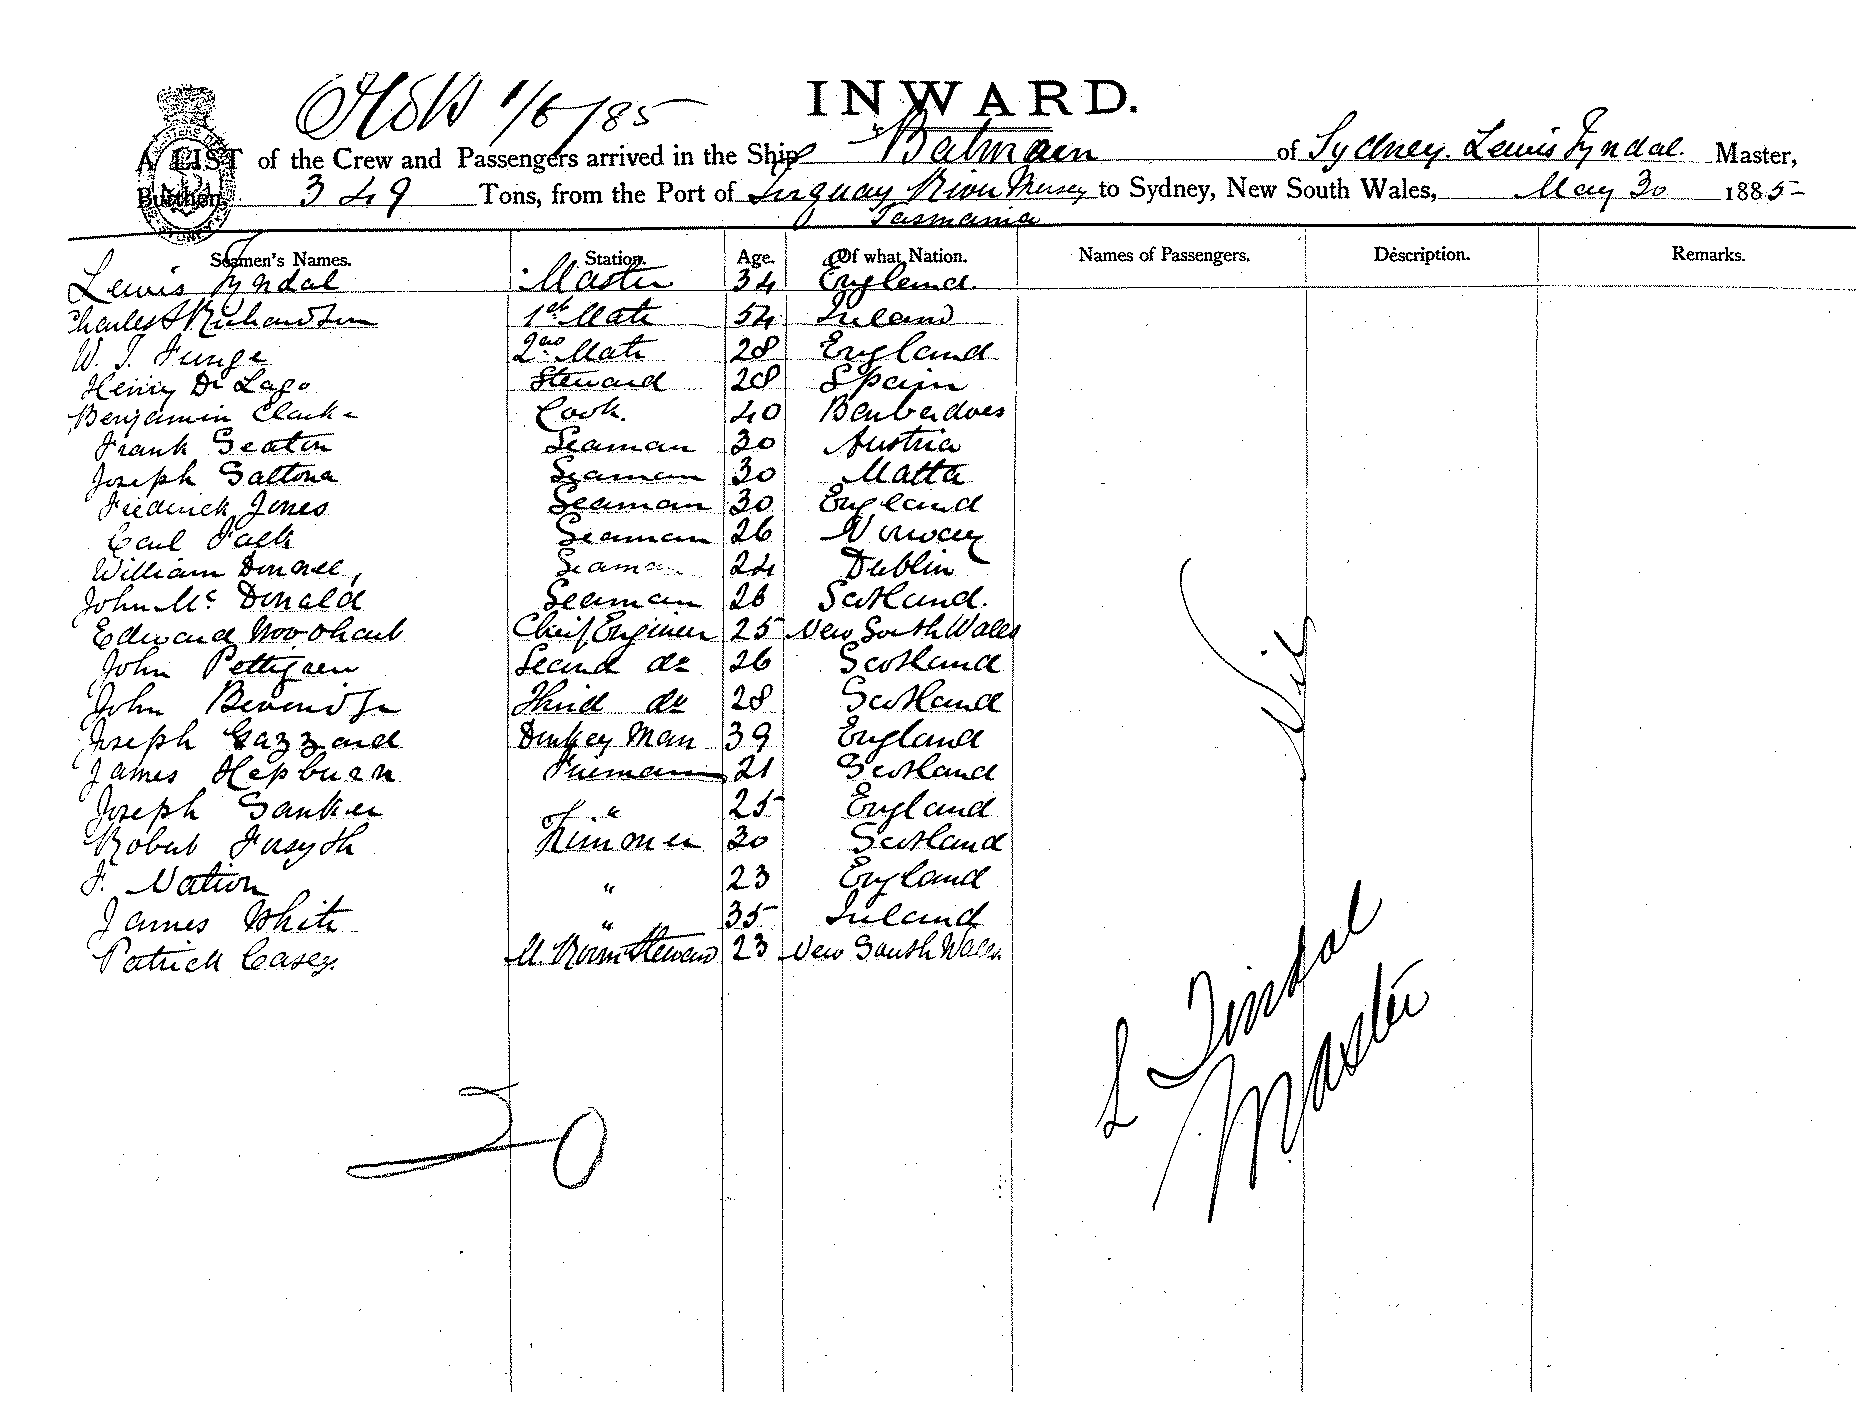 INWARD.
1/6/85
A LIST of the Crew and Passengers arrived in the Ship Balmain of Sydney. Lewis Tyndal. Master,
Burthen, 349 Tons, from the Port of Torquay River Mersey to Sydney, New South Wales, May 30 1885
Tasmania
Seamen's Names. Station. Age. Of what Nation. Names of Passengers. Description. Remarks.
Lewis Tyndal Master 34 England.
Charles Richardson 1st Mate 54 Ireland
W. J. Funge 2nd Mate 28 England
Henry De Lago Steward 28 Spain
Benjamin Clarke Cook. 40 Barbadoes
Frank Seaton Seaman 30 Austria
Joseph Saltona Seaman 30 Malta
Frederick Jones Seaman 30 England
Carl Falk Seaman 26 Norway
William Donnell, Seaman 24 Dublin
John Mc Donald Seaman 26 Scotland.
Edward Woodhart Chief Engineer 25 New South Wales
John Pettigrew Second do 26 Scotland
John Beveridge Third do 28 Scotland
Joseph Gazzard Donkey Man 39 England
James Hepburn Fireman 21 Scotland
Joseph Sanker " 25 England
Robert Forsyth Trimmer 30 Scotland
F. Nation " 23 England
James White " 35 Ireland
Patrick Casey. M. Room Steward 23 New South Wales
Nil
L Tindal
Master
20